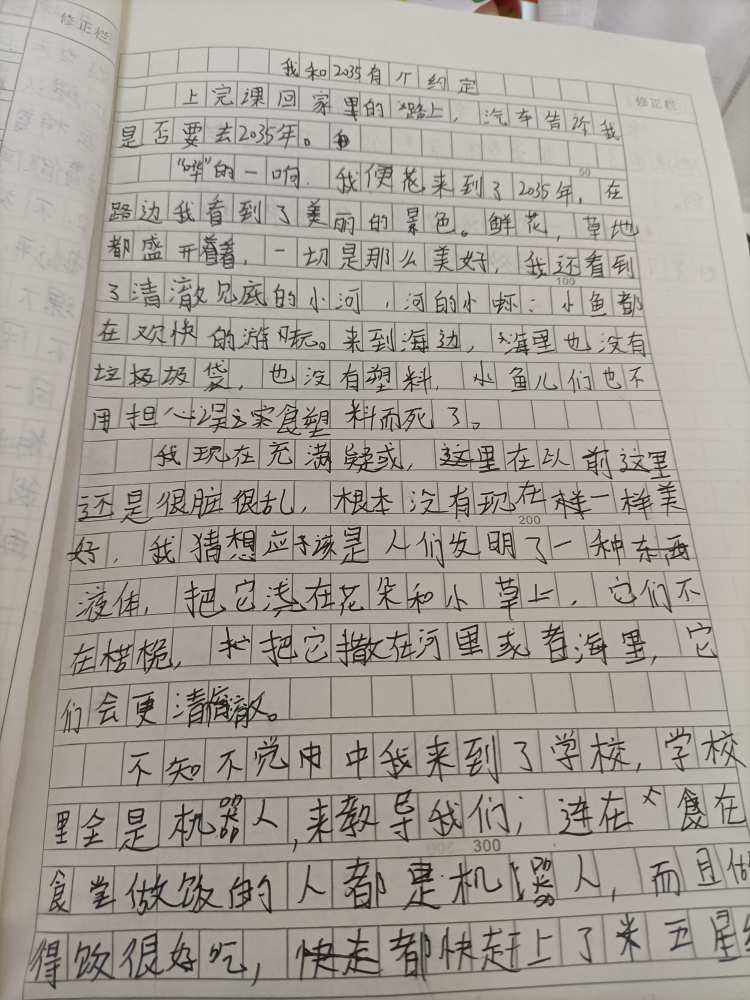 修正栏
修正栏
我和2035有个约定
上完课回家里的路上，汽车告诉我
是否要去2035年。
50
"哗"的一响，我便来到了2035年，在
路边我看到了美丽的景色。鲜花，草地
都盛开着，一切是那么美好，我还看到
100
了清澈见底的小河，河的小虾；小鱼都
在欢快的游玩。来到海边，海里也没有
垃圾袋，也没有塑料，小鱼儿们也不
用担心误食塑料而死了。
我现在充满疑或，这里在以前这里
还是很脏很乱，根本没有现在一样美
200
好，我猜想应该是人们发明了一种
液体，把它浇在花朵和小草上，它们不
在枯桅，把它撒在河里或者海里，它
们会更清澈。
不知不觉中我来到了学校，学校
里全是机器人，来教导我们；连在食在
300
食堂做饭的人都是机器人，而且做
得饭很好吃，都快赶上了五星级